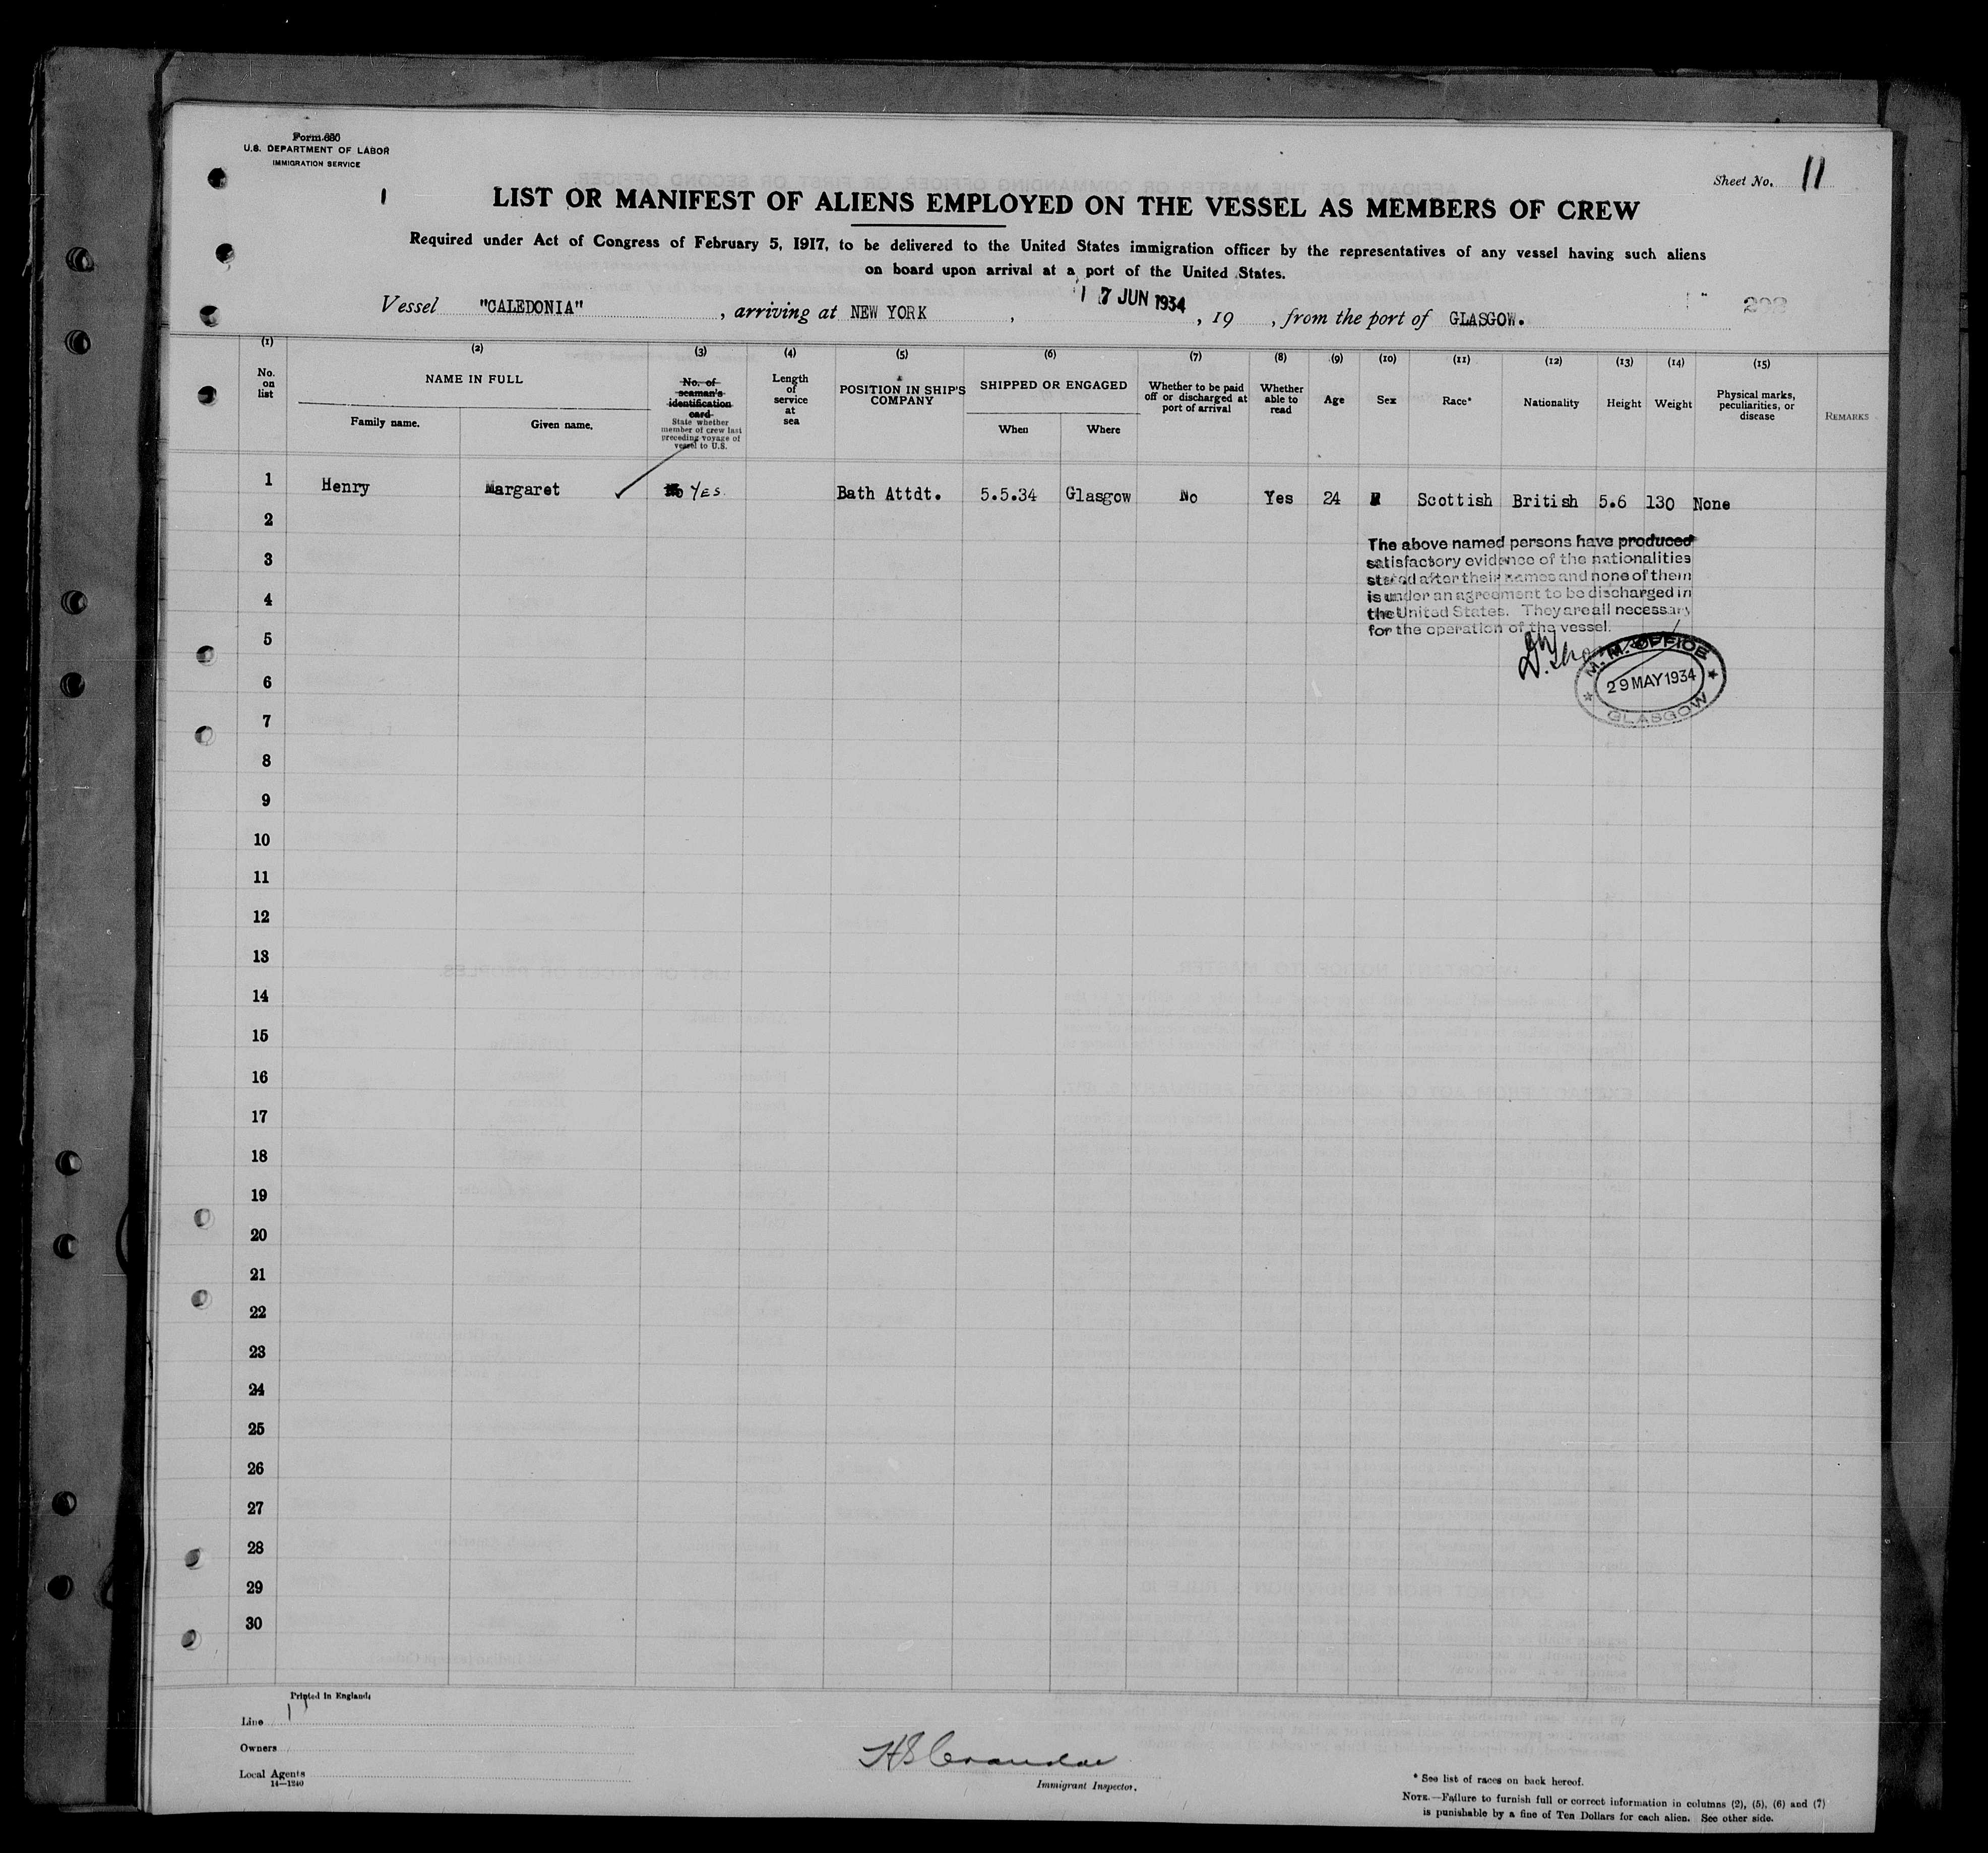 Form 680
U.S. DEPARTMENT OF LABOR
IMMIGRATION SERVICE
Sheet No. 11
1
LIST OR MANIFEST OF ALIENS EMPLOYED ON THE VESSEL AS MEMBERS OF CREW
Required under Act of Congress of February 5, 1917, to be delivered to the United States immigration officer by the representatives of any vessel having such aliens
on board upon arrival at a port of the United States.
Vessel "CALEDONIA", arriving at NEW YORK, 7 JUN 1934, 19, from the port of GLASGOW.
(1) (2) (3) (4) (5) (6) (7) (8) (9) (10) (11) (12) (13) (14) (15)
No. on list
NAME IN FULL
Family name. Given name.
No. of seaman's identification card
State whether member of crew last preceding voyage of vessel to U.S.
Length of service at sea
POSITION IN SHIP'S COMPANY
SHIPPED OR ENGAGED
When Where
Whether to be paid off or discharged at port of arrival
Whether able to read
Age
Sex
Race*
Nationality
Height
Weight
Physical marks, peculiarities, or disease
REMARKS
1 Henry Margaret YES Bath Attdt. 5.5.34 Glasgow No Yes 24 Scottish British 5.6 130 None
2
The above named persons have produced
3
satisfactory evidence of the nationalities
stated after their names and none of them
4
is under an agreement to be discharged in
the United States. They are all necessary
5
for the operation of the vessel.
M. M. OFFICE
6
29 MAY 1934
GLASGOW
7
8
9
10
11
12
13
14
15
16
17
18
19
20
21
22
23
24
25
26
27
28
29
30
Printed in England
Line
Owners
Local Agents
14—1240
Immigrant Inspector.
* See list of races on back hereof.
NOTE.—Failure to furnish full or correct information in columns (2), (5), (6) and (7)
is punishable by a fine of Ten Dollars for each alien. See other side.